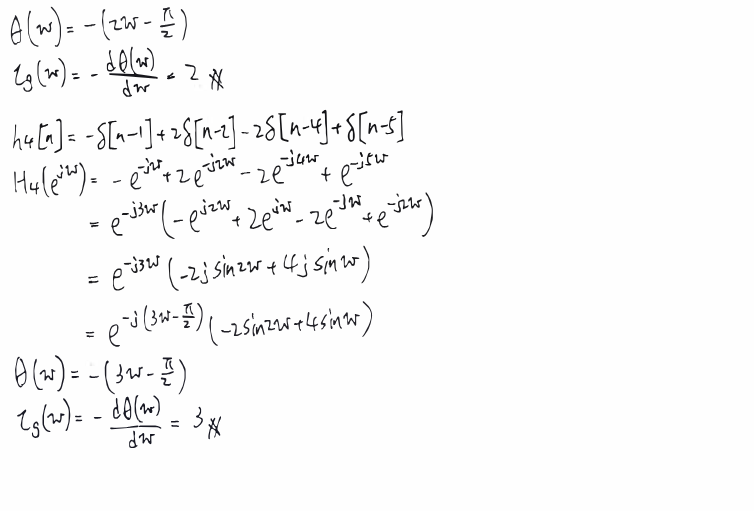 θ(w) = -(2w - π/2)
τg(w) = - dθ(w)/dw = 2 ※
h4[n] = -δ[n-1] + 2δ[n-2] - 2δ[n-4] + δ[n-5]
H4(e^{jw}) = - e^{-jw} + 2e^{-j2w} - 2e^{-j4w} + e^{-j5w}
= e^{-j3w}(-e^{j2w} + 2e^{jw} - 2e^{-jw} + e^{-j2w})
= e^{-j3w}(-2j sin2w + 4j sinw)
= e^{-j(3w - π/2)}(-2sin2w + 4sinw)
θ(w) = -(3w - π/2)
τg(w) = - dθ(w)/dw = 3 ※